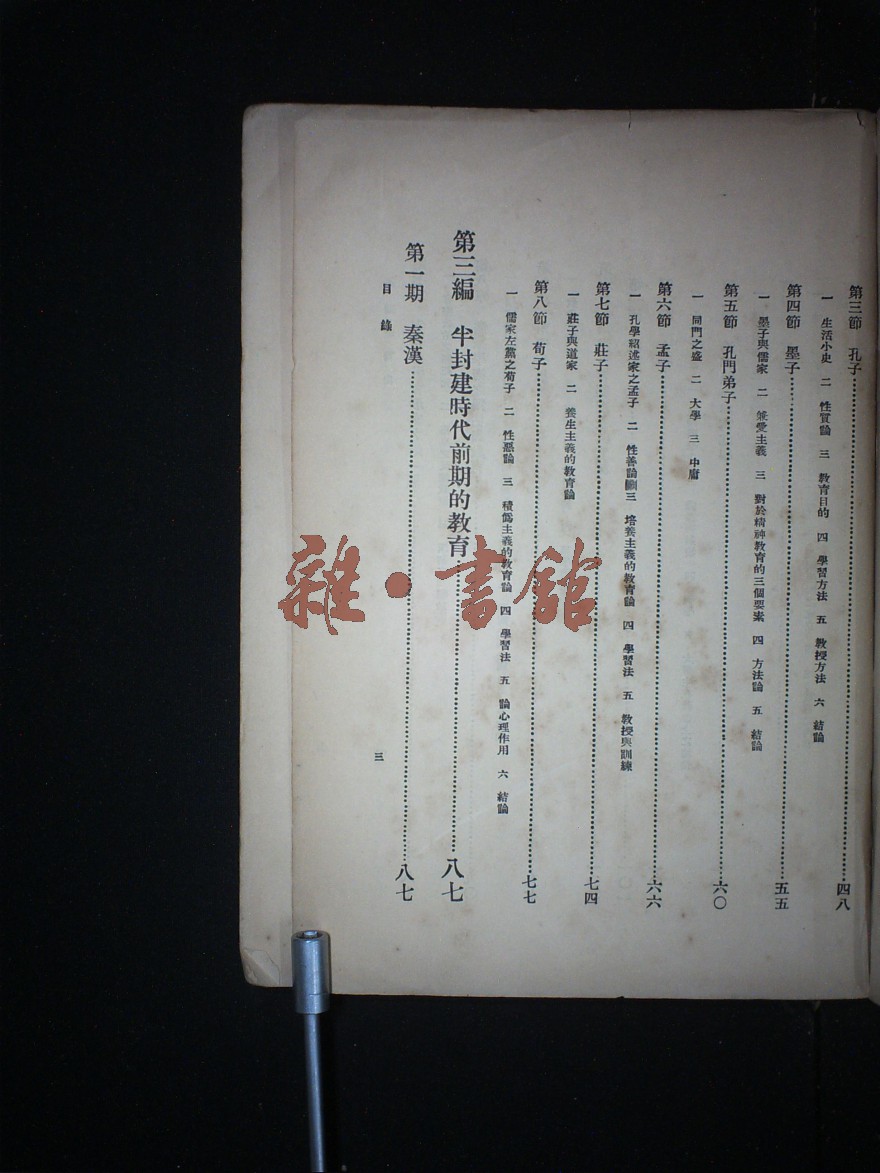 第三節 孔子……四八
一 生活小史 二 性質論 三 教育目的 四 學習方法 五 教授方法 六 結論
第四節 墨子……五五
一 墨子與儒家 二 兼愛主義 三 對於精神教育的三個要素 四 方法論 五 結論
第五節 孔門弟子……六〇
一 同門之盛 二 大學 三 中庸
第六節 孟子……六六
一 孔學紹述家之孟子 二 性善論 三 培養主義的教育論 四 學習法 五 教授與訓練
第七節 莊子……七四
一 莊子與道家 二 養生主義的教育論
第八節 荀子……七七
一 儒家左黨之荀子 二 性惡論 三 積僞主義的教育論 四 學習法 五 論心理作用 六 結論
第三編 半封建時代前期的教育……八七
第一期 秦漢……八七
目錄
三
雜·書館